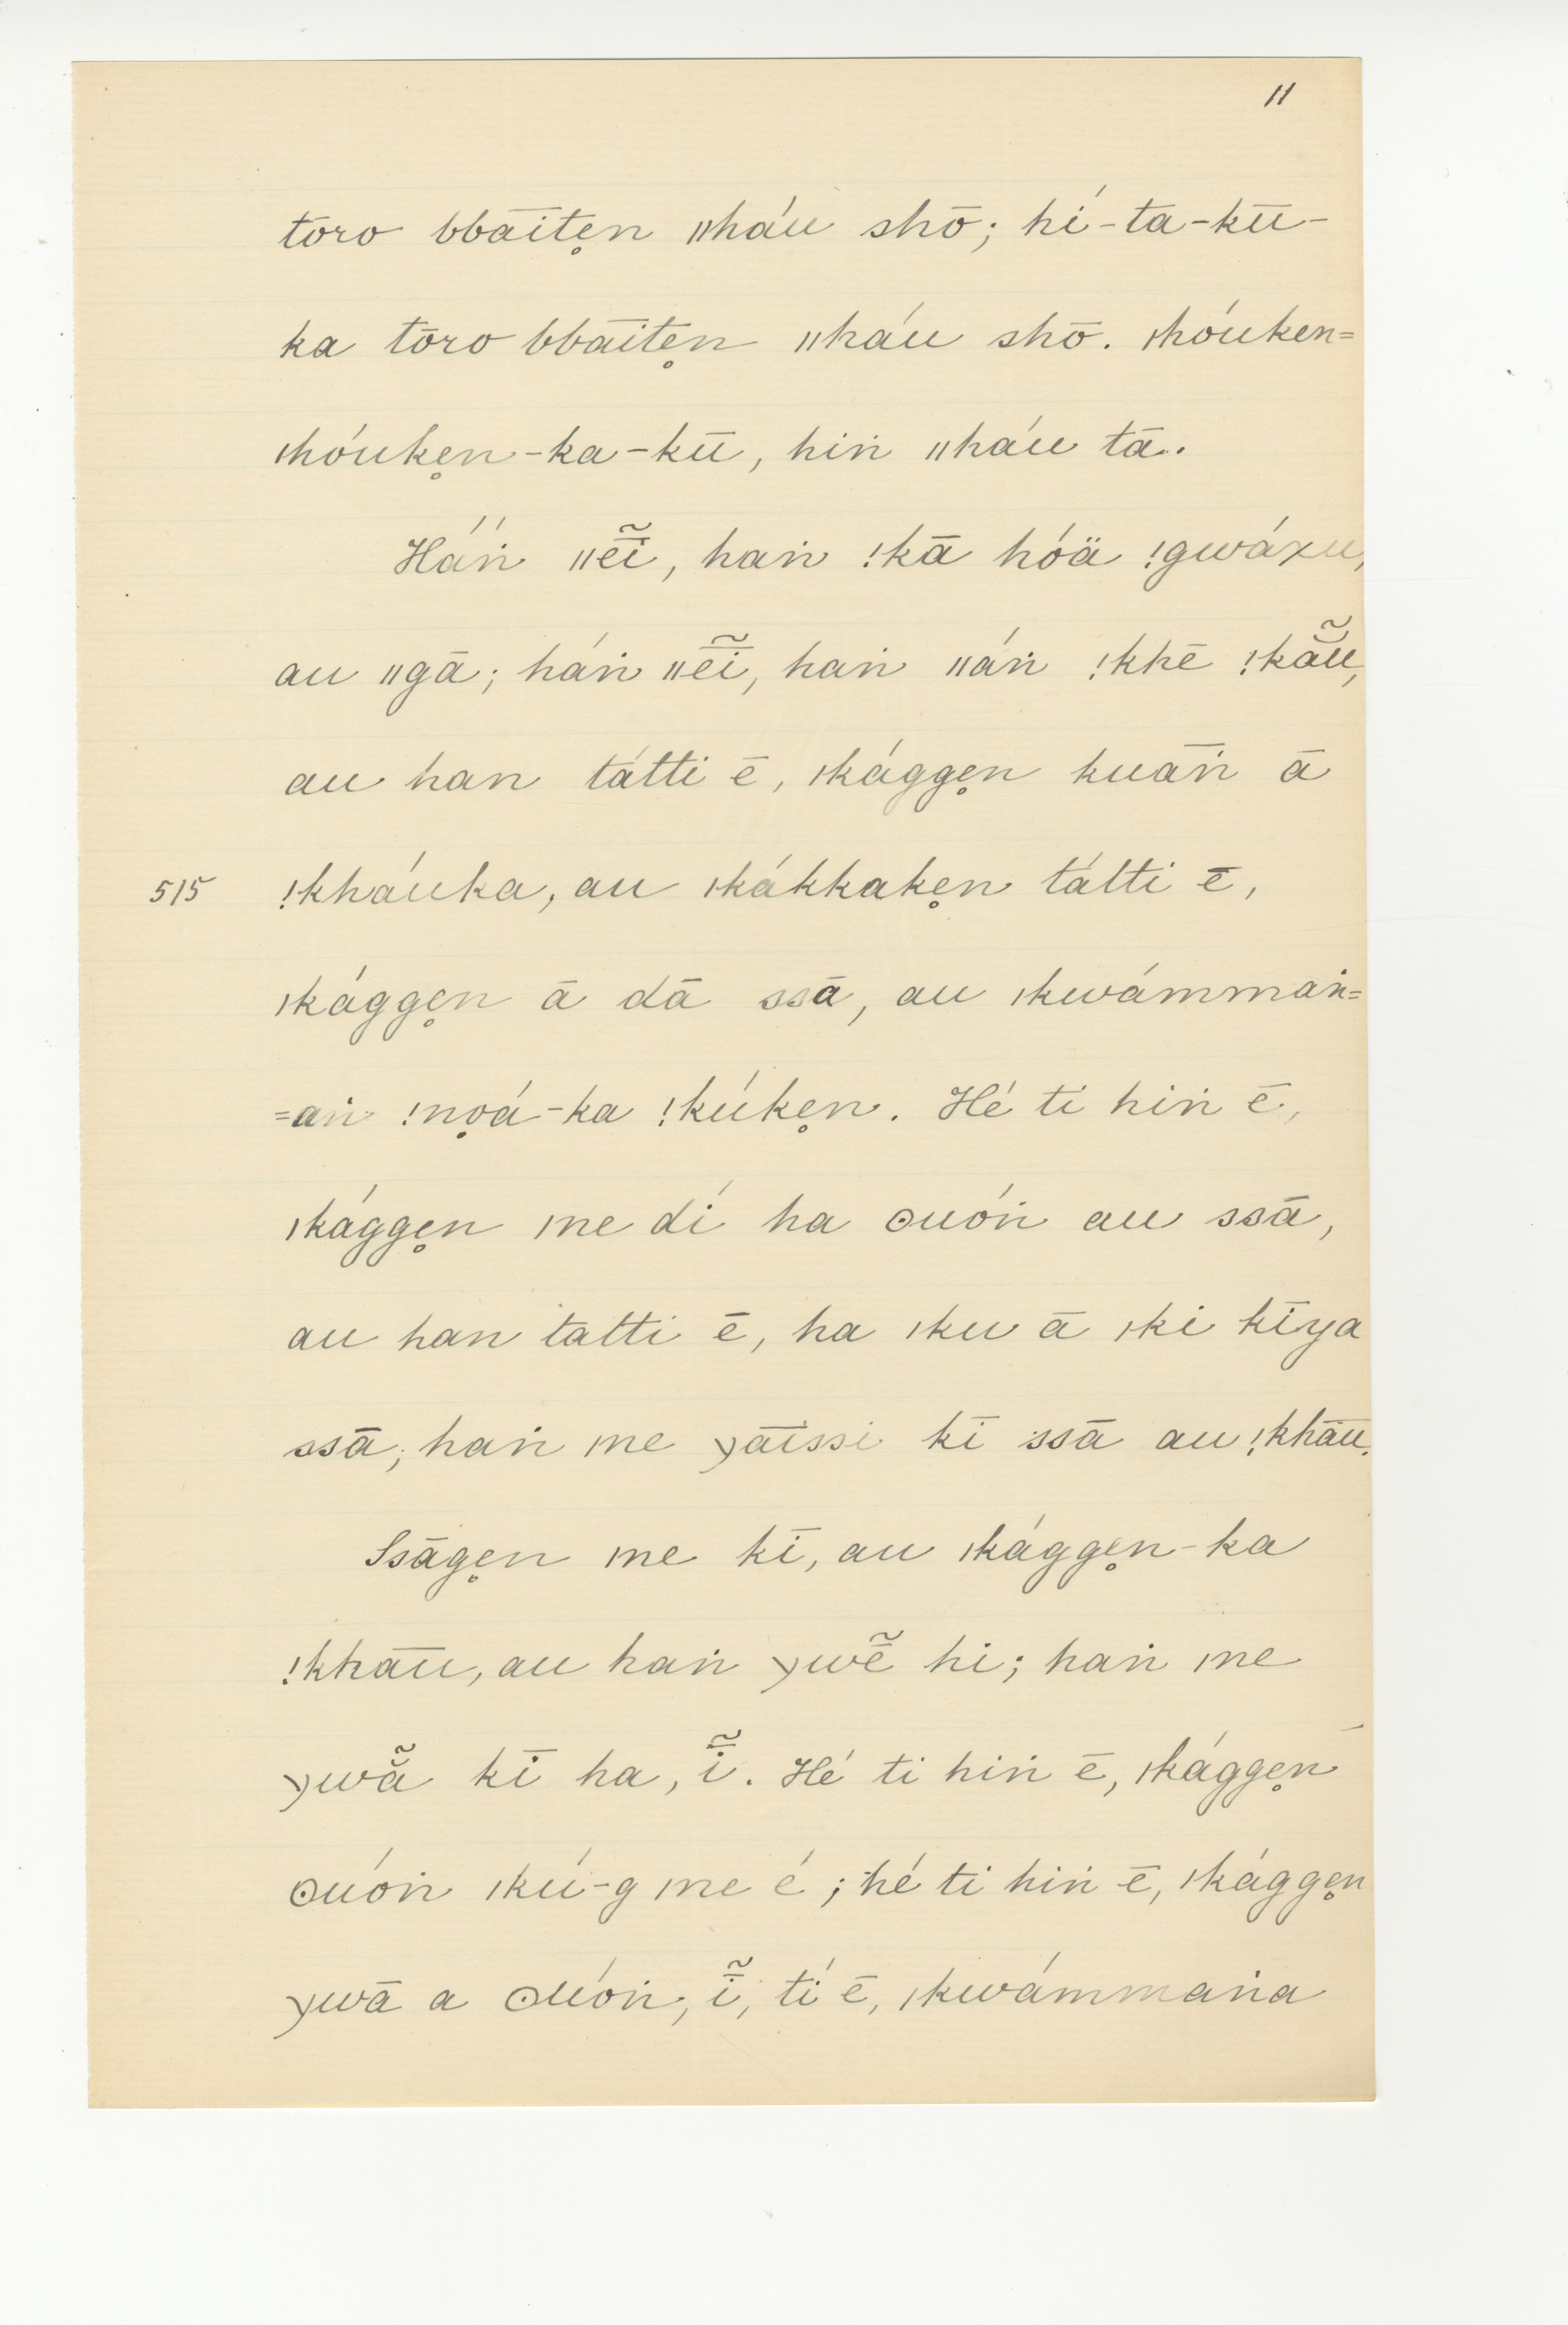 11
tōro bbāitẹn ǁháu shō; hí-ta-kū-
ka tōro bbāitẹn ǁháu shō. ǀhóuken=
ǀhóukẹn-ka-kū, hiṅ ǁháu tā..
Háṅ ǁē̃ī, haṅ !kā hóä !gwáχu,
au ǁgā; háṅ ǁē̃ī, haṅ ǁáṅ !khē !kā̃ū,
au han tátti ē, ǀkággẹn kuāṅ ā
515 !kháuka, au ǀkákkakẹn tátti ē,
ǀkággẹn ā dā ssā, au ǀkwámmaṅ=
=aṅ !nọá-ka !kúkẹn. Hé ti hiṅ ē,
ǀkággẹn ǀne dí ha ʘuóṅ au ssā,
au han tatti ē, ha ǀku ā ǀki kīya
ssā; haṅ ǀne ɣāīssi kī ssā au !khāū.
Ssāgẹn ǀne kī, au ǀkággẹn-ka
!khāū, au haṅ ɣwē̃ hi; haṅ ǀne
ɣwā̃ kī ha, ī̃. Hé ti hiṅ ē, ǀkággẹn
ʘuóṅ ǀkú-g ǀne é; hé ti hiṅ ē, ǀkággẹn
ɣwā a ʘuóṅ, ī̃, tí ē, ǀkwámmaṅa